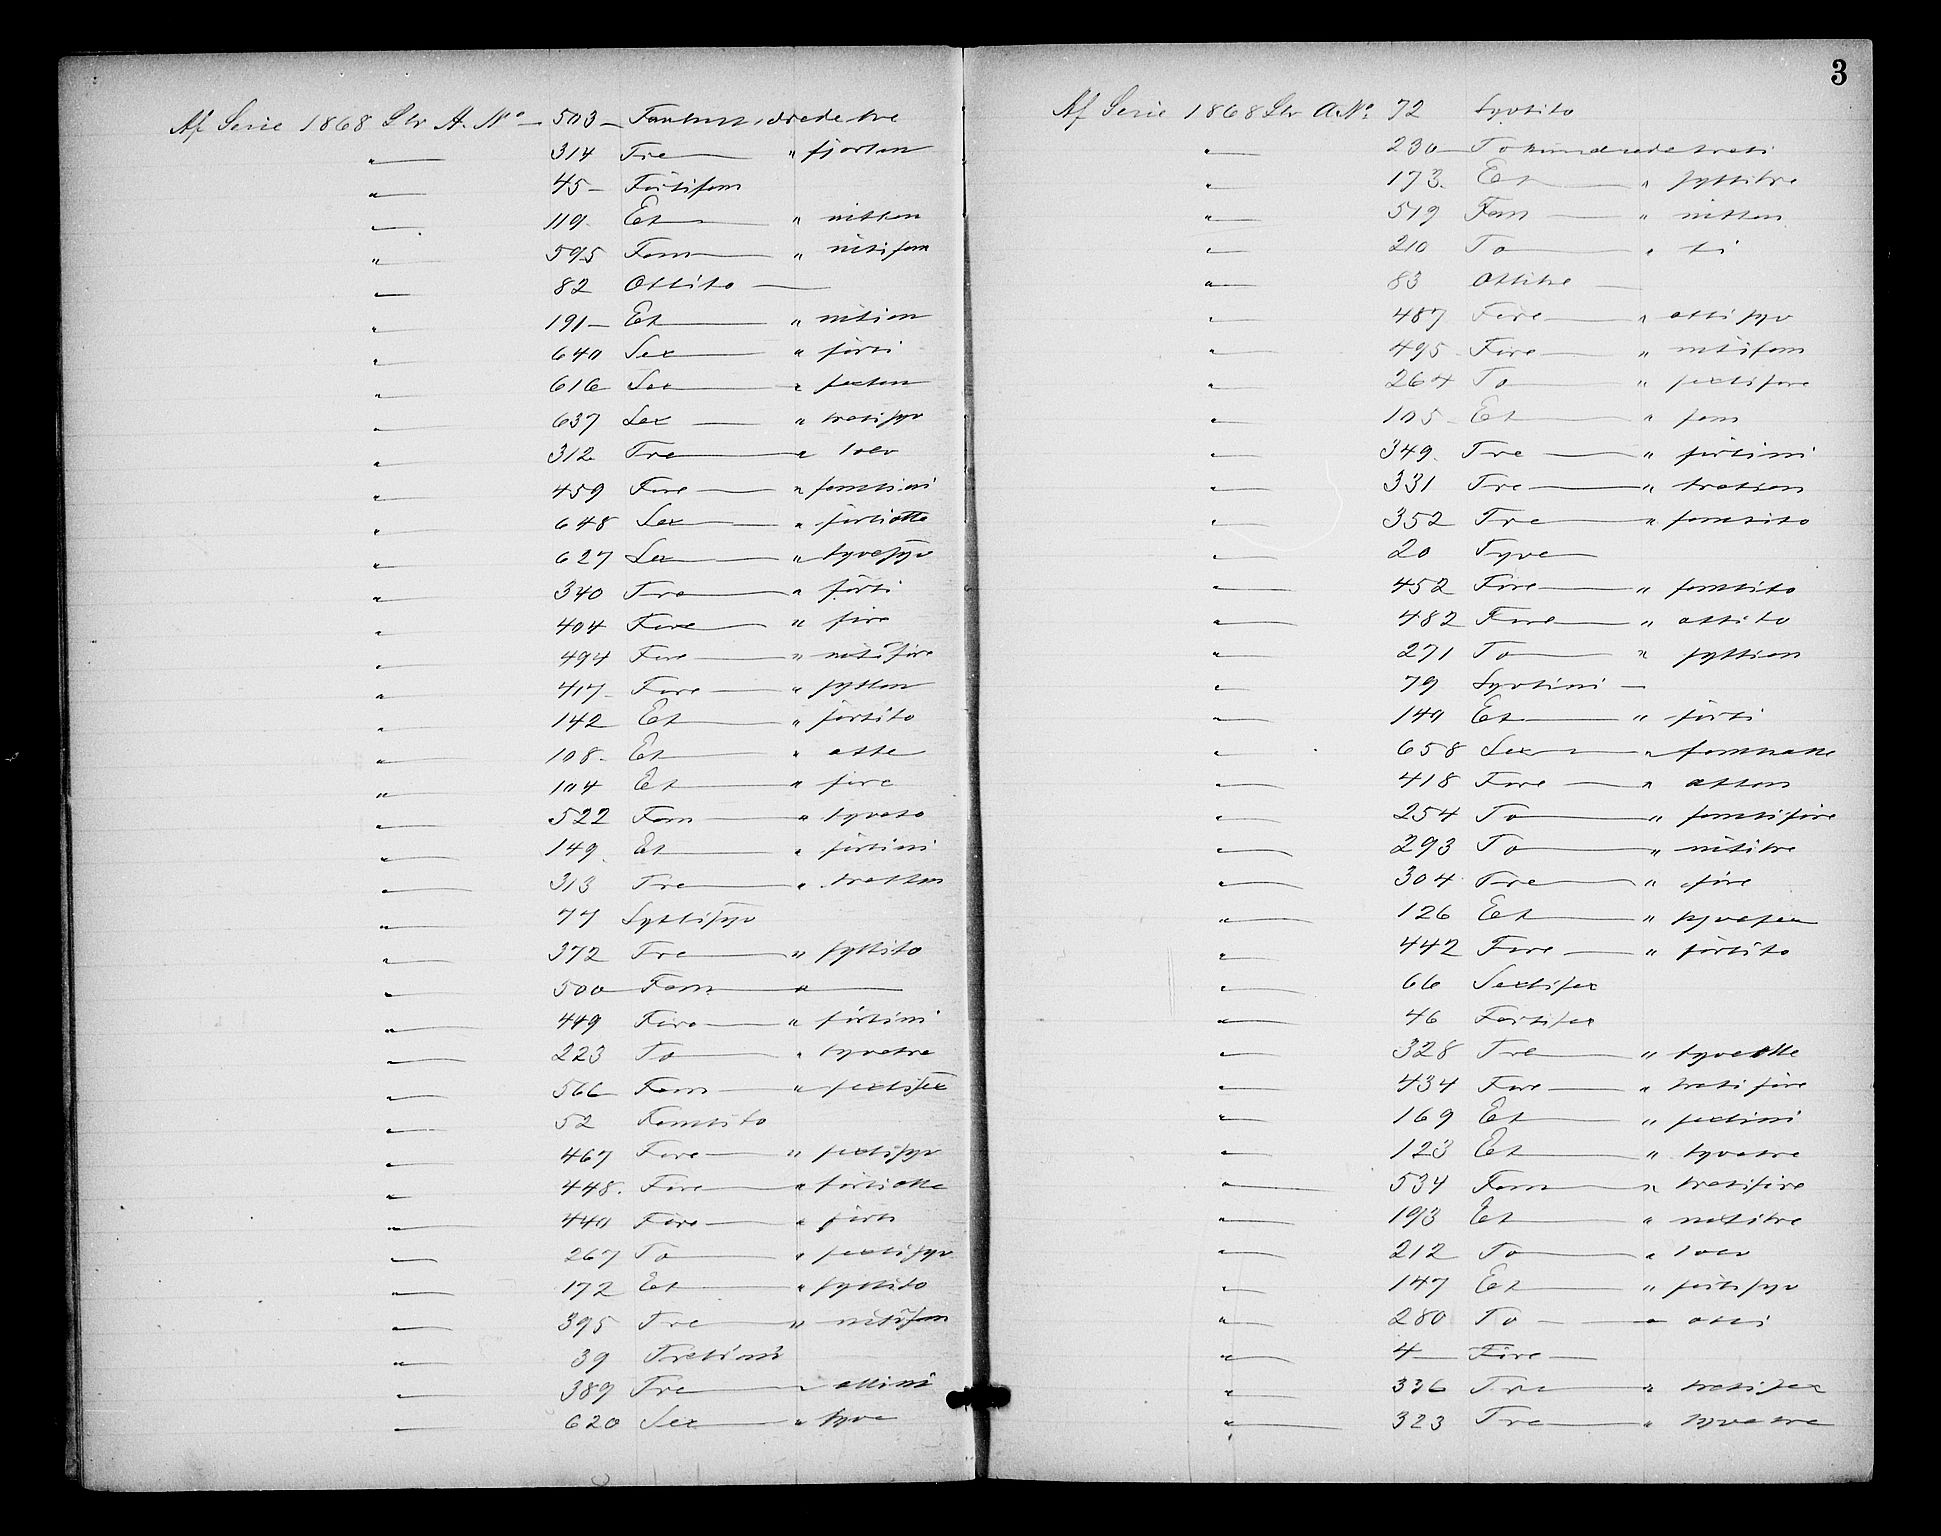 Af Serie 1868 Ltr A. No — 503 — Femhundrede tre
" — 314 Tre — " fjorten
" — 45 — Førtifem
" — 119. Et — " nitten
" — 595 Fem — " nitifem
" — 82 Ottito —
" — 191 — Et — " nitien
" — 640 Sex — " førti
" — 616 Sex — " sexten
" — 637 Sex — " tretisyv
" — 312 Tre — " tolv
" — 459 Fire — " femtini
" — 648 Sex — " førtiotte
" — 627 Sex — " tyvesyv
" — 340 Tre — " førti
" — 404 Fire — " fire
" — 494 Fire — " nitifire
" — 417 — Fire — " sytten
" — 142 Et — " førtito
" — 108. Et — " otte
" — 104 Et — " fire
" — 522 Fem — " tyveto
" — 149. Et — " førtini
" — 313 Tre — " tretten
" — 77 Syttisyv
" — 372 Tre — " syttito
" — 500 — Fem — " —
" — 449 Fire — " førtini
" — 223 To — " tyvetre
" — 566 Fem — " sextisex
" — 52 Femtito
" — 467 Fire — " sextisyv
" — 448. Fire — " førtiotte
" — 440 Fire — " førti
" — 267 To — " sextisyv
" — 172 Et — " syttito
" — 395 Tre — " nitifem
" — 39 Tretini
" — 389 Tre — " ottini
" — 620 Sex — " tyve
3
Af Serie 1868 Ltr A No. 72 Syttito
" — 230 — Tohundrede treti
" — 173. Et — " syttitre
" — 519 Fem — " nitten
" — 210 To — " ti
" — 83 Ottitre —
" — 487 Fire — " ottisyv
" — 495 Fire — " nitifem
" — 264 To — " sextifire
" — 105 Et — " fem
" — 349. Tre — " førtini
" — 331 Tre — " tretien
" — 352 Tre — " femtito
" — 20 Tyve —
" — 452 Fire — " femtito
" — 482 Fire — " ottito
" — 271 To — " syttien
" — 79 Syttini —
" — 140 Et — " førti
" — 658 Sex — " femtiotte
" — 418 Fire — " atten
" — 254 To — " femtifire
" — 293 To — " nititre
" — 304 Tre — " fire
" — 126 Et — " tyvesex
" — 442 Fire — " førtito
" — 66 Sextisex
" — 46 Førtisex
" — 328 Tre — " tyveotte
" — 434 Fire — " tretifire
" — 169 Et — " sextini
" — 123 Et — " tyvetre
" — 534 Fem — " tretifire
" — 193 Et — " nititre
" — 212 To — " tolv
" — 147 Et — " førtisyv
" — 280 To — " otti
" — 4 — Fire —
" — 336 Tre — " tretisex
" — 323 Tre — " tyvetre